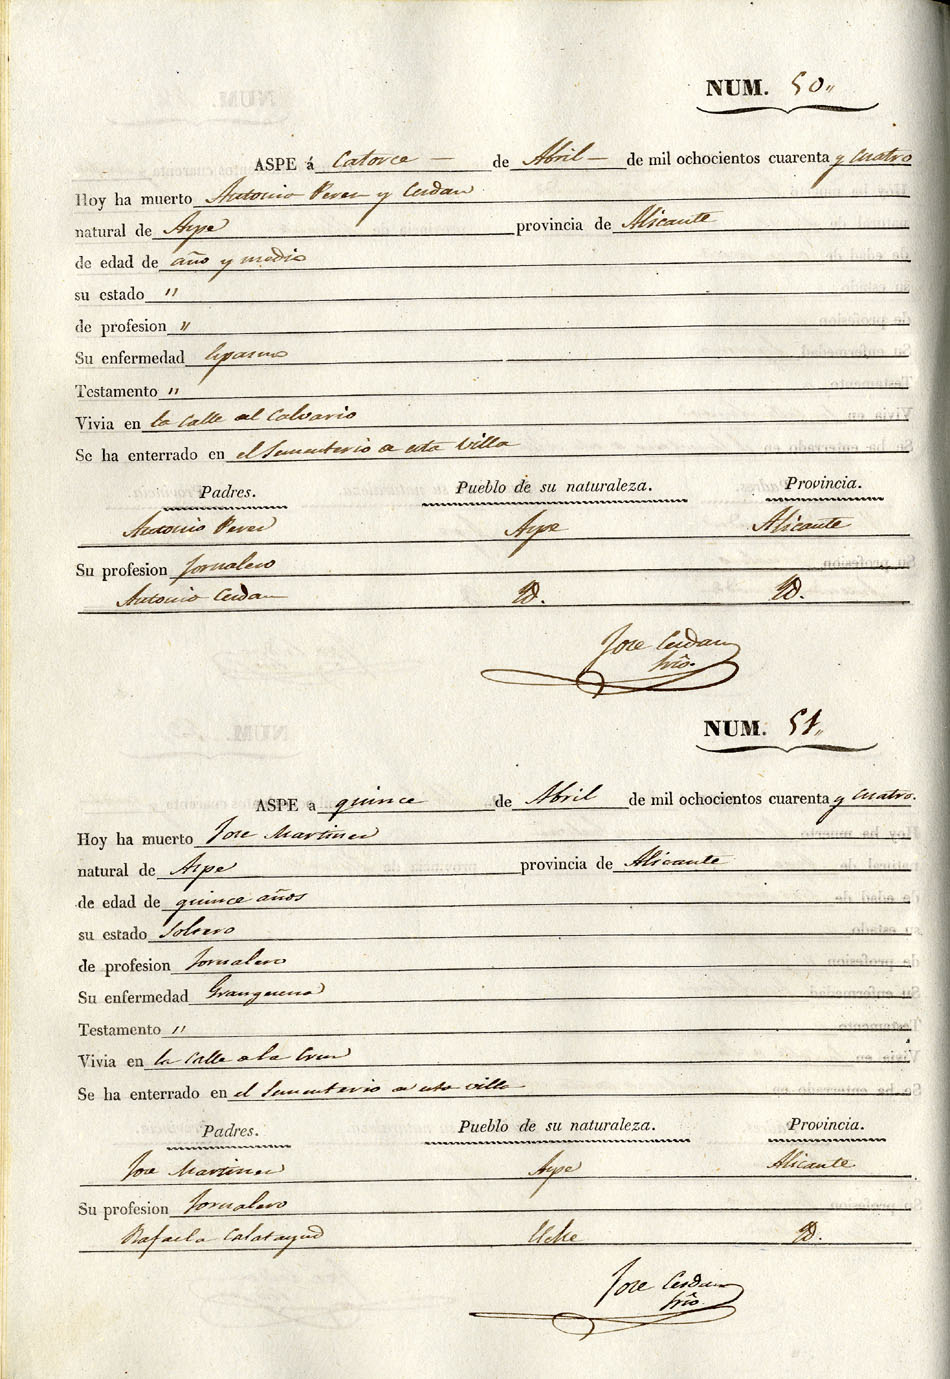 NUM. 50,,
ASPE á Catorce — de Abril — de mil ochocientos cuarenta y cuatro
Hoy ha muerto Antonio Perez y Cerdan
natural de Aspe provincia de Alicante
de edad de año y medio
su estado "
de profesion "
Su enfermedad Espasmo
Testamento "
Vivia en la Calle del Calvario
Se ha enterrado en el Sementerio de esta Villa
Padres. Pueblo de su naturaleza. Provincia.
Antonio Perez Aspe Alicante
Su profesion Jornalero
Antonia Cerdan Yd. Yd.
Jose Cerdan
Srio.
NUM. 51,,
ASPE a quince de Abril de mil ochocientos cuarenta y cuatro.
Hoy ha muerto Jose Martinez
natural de Aspe provincia de Alicante
de edad de quince años
su estado Soltero
de profesion Jornalero
Su enfermedad Grangrena
Testamento "
Vivia en la Calle de la Cruz
Se ha enterrado en el Sementerio de esta villa
Padres. Pueblo de su naturaleza. Provincia.
Jose Martinez Aspe Alicante
Su profesion Jornalero
Rafaela Calatayud Elche Yd.
Jose Cerdan
Srio.